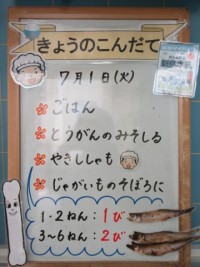 きょうのこんだて
7月1日(火)
ごはん
とうがんのみそしる
やきししゃも
じゃがいものそぼろに
1-2ねん:1び
3~6ねん:2び